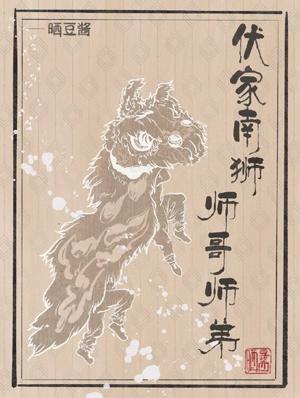 伏家南狮
师哥师弟
——晒豆酱